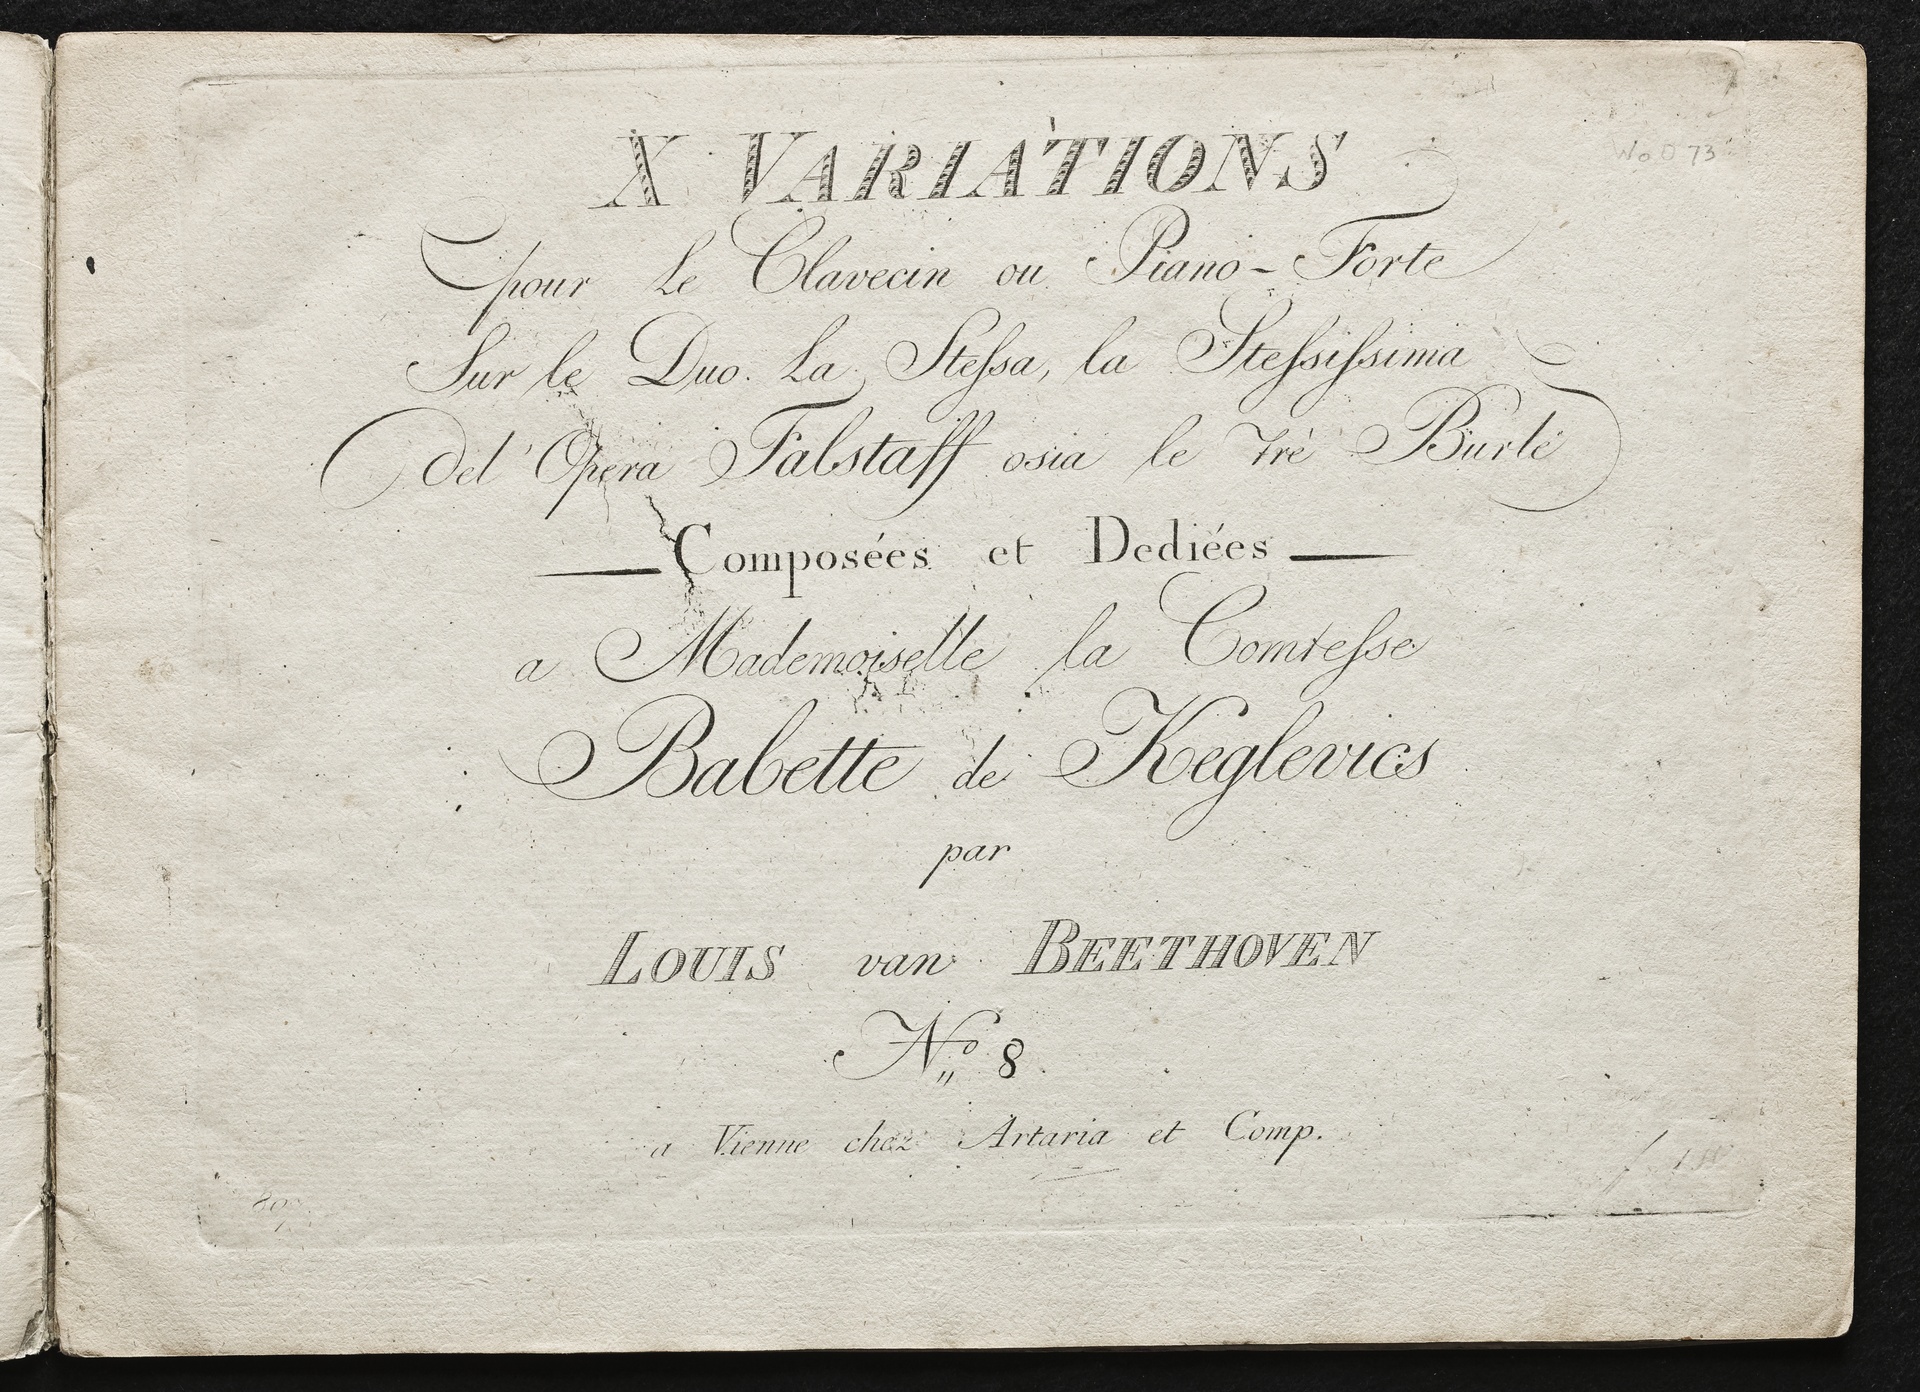 WoO 73
X VARIATIONS
pour le Clavecin ou Piano-Forte
Sur le Duo. La Stessa, la Stessissima
del'Opera Falstaff osia le Trè Burle
Composées et Dediées
a Mademoiselle la Comtesse
Babette de Keglevics
par
LOUIS van BEETHOVEN
No. 8
a Vienne chez Artaria et Comp.